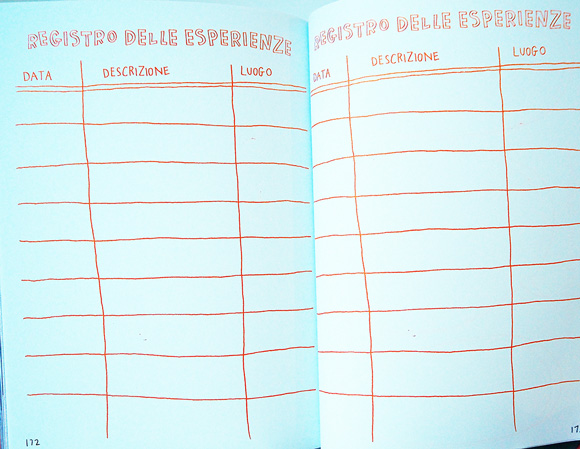 REGISTRO DELLE ESPERIENZE
DATA DESCRIZIONE LUOGO
172
REGISTRO DELLE ESPERIENZE
DATA DESCRIZIONE LUOGO